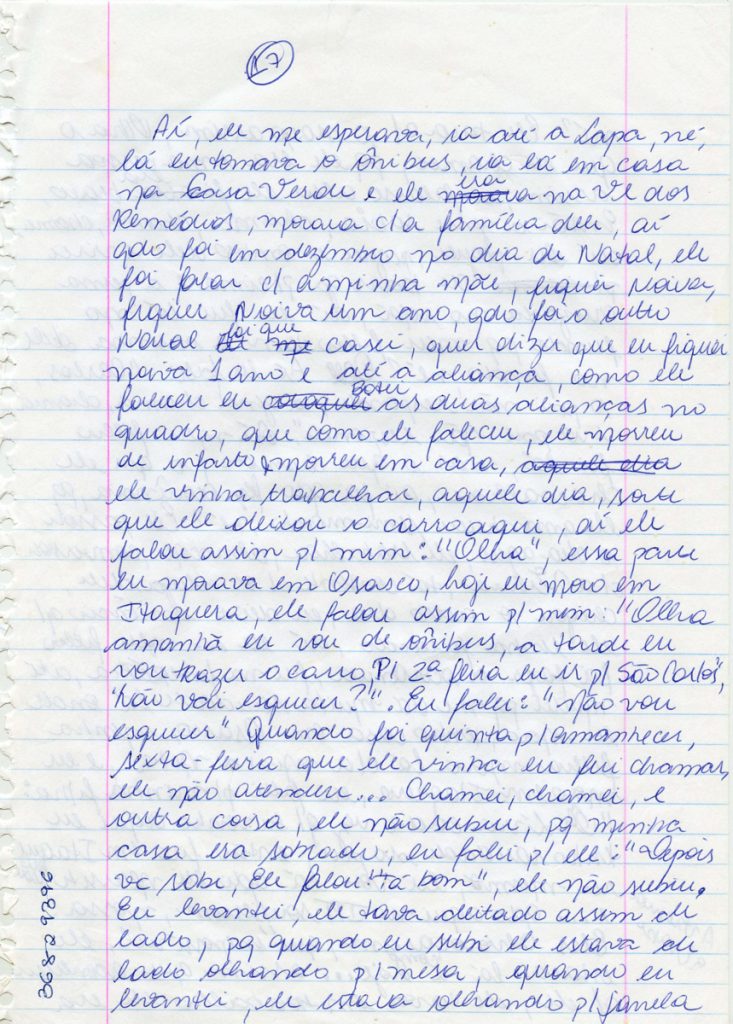 17
Aí, ele me esperava, ia até a Lapa, né,
lá eu tomava o ônibus, ia lá em casa
na Casa Verde e ele morava era na V. dos
Remédios, morava c/ a família dele, aí
qdo foi em dezembro no dia de Natal, ele
foi falar c/ a minha mãe, fiquei noiva,
fiquei noiva um ano, qdo foi o outro
Natal foi que me casei, quer dizer que eu fiquei
noiva 1 ano e até a aliança, como ele
faleceu eu coloquei botei as duas alianças no
quadro, que como ele faleceu, ele morreu
de infarto, morreu em casa, aquele dia
ele vinha trabalhar, aquele dia, sorte
que ele deixou o carro aqui, aí ele
falou assim p/ mim: "Olha", essa parte
eu morava em Osasco, hoje eu moro em
Itaquera, ele falou assim p/ mim: "Olha
amanhã eu vou de ônibus, a tarde eu
vou trazer o carro, p/ 2ª feira eu ir p/ São Carlos",
"não vai esquecer?". Eu falei: "não vou
esquecer" Quando foi quinta p/ amanhecer,
sexta-feira que ele vinha eu fui chamar,
ele não atendeu... Chamei, chamei, e
outra coisa, ele não subiu, pq minha
casa era sobrado, eu falei p/ ele: "Depois
vc sobe, Ele falou "tá bom", ele não subiu.
Eu levantei, ele tava deitado assim de
lado, pq quando eu subi ele estava de
lado olhando p/ mesa, quando eu
levantei, ele estava olhando p/ janela